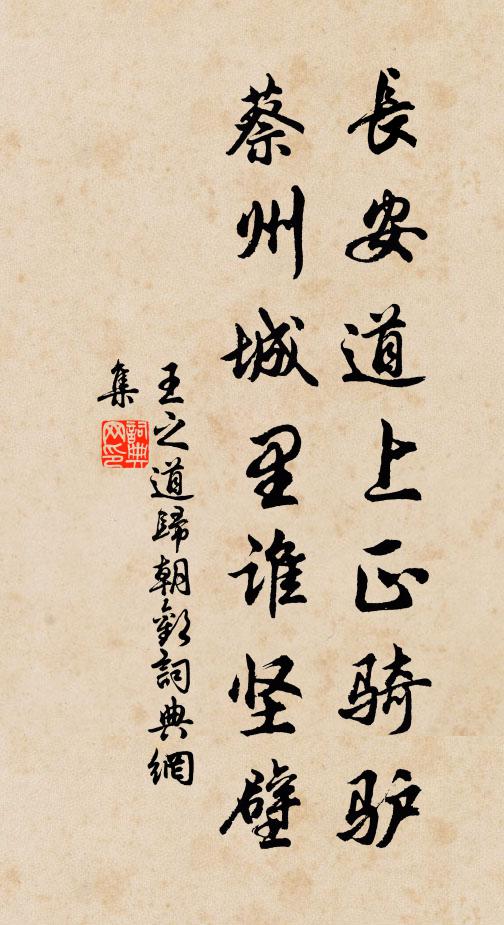 長安道上正骑驴
蔡州城里谁坚壁
王之道歸朝歡詞典網
集
詞典網印